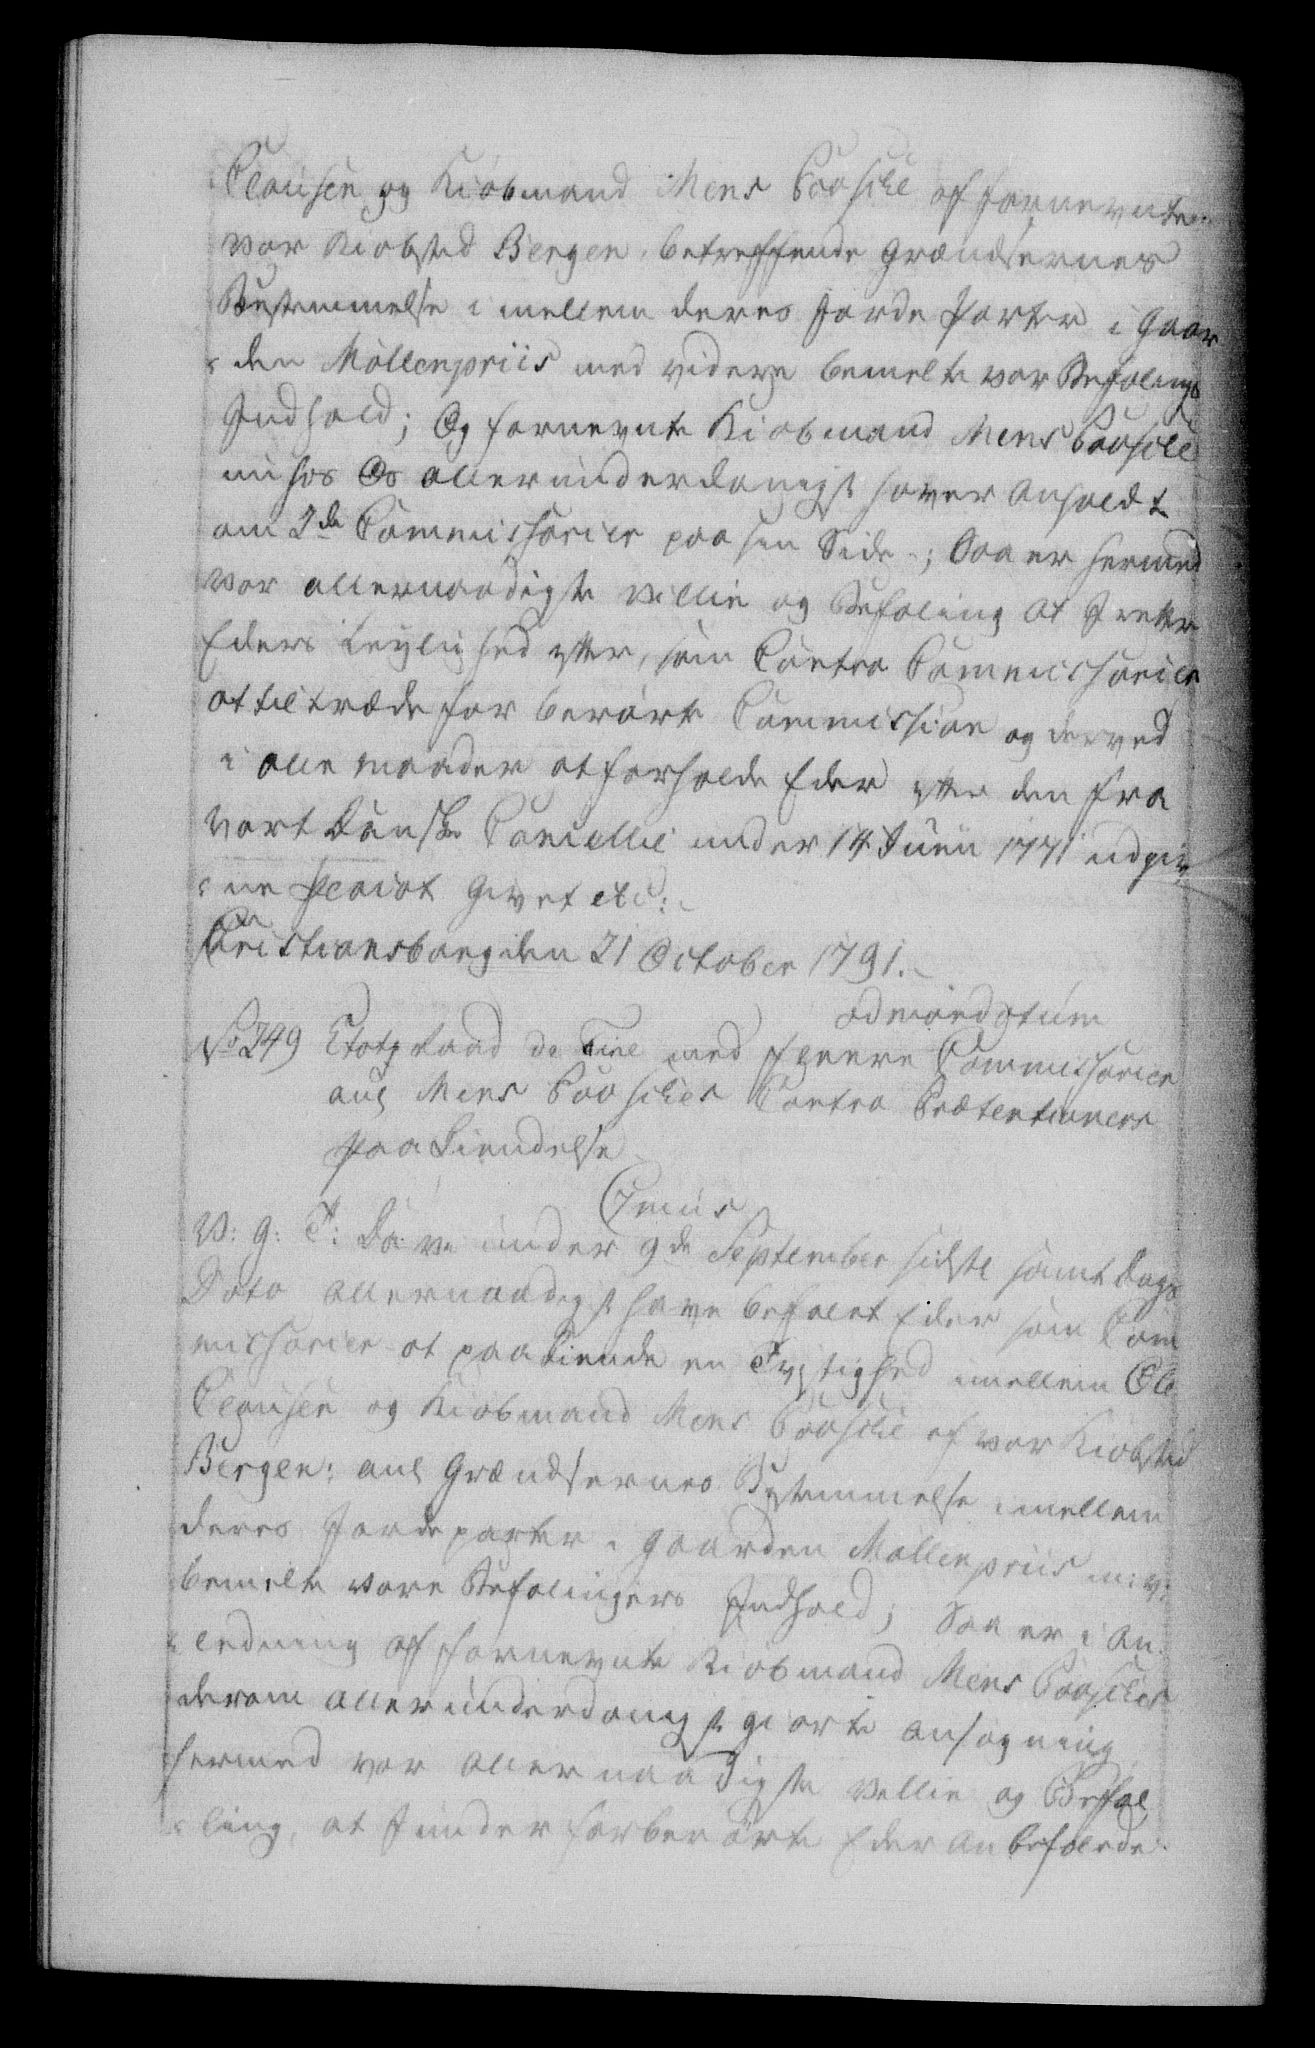 Clausen og Kiöbmand Mens Paasche af fornevnte
vor Kiobsted Bergen, betreffende Grændsernes
Bestemmelse i mellem deres Jorde Parter i Gaar
den Möllenpriis med videre bemelte vor Befalings
Indhold; Og fornevnte Kiobmand Mens Paasche
nu hos Os allerunderdanigst haver anholdt
om 2de Commissarier paa sin Side; Saa er hermed
vor allernaadigste villie og Befaling at I rette
Eders Leylighed efter, som Contra Commissarier
at tiltræde for berörte Commission og derved
i alle maader at forholde Eder efter den fra
vort Danske Cancellie under 14 Junii 1771 udgiv
ne Placat Givet etc:
Christiansborg den 21 October 1791.
ad mandatum
No 349 Etatz Raad de Fine med fleere Commissarier
ang Mens Paasches Contra Prætentioners
paa Kiendelse
C 7mus
V: g: T: Da vi under 9de September sidste samt Dags
Dato allernaadigst have befalet Eder som Com
missarier at paakiende en Tvistighed imellem Ole
Clausen og Kiöbmand Mens Paasche af vor Kiöbsted
Bergen: ang Grændsernes Bestemmelse imellem
deres Jordeparter i Gaarden Möllenpriis m: v:
bemelte vore Befalingers Indhold; Saa er i An
ledning af fornevnte Kiobmand Mens Paasches
derom allerunderdanigst giorte ansögning
hermed vor allernaadigste villie og Befal
ling, at I under forberörte Eder anbefalede